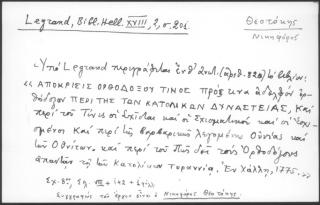 Legrand, Bibl. Hell. XVIII, 2, σ. 201.
Θεοτόκης
Νικηφόρος
Ὑπὸ Legrand περιγράφεται ἐνθ' ἀνωτ. (ἀριθ. 820) τὸ βιβλίον:
«ΑΠΟΚΡΙΣΙΣ ΟΡΘΟΔΟΞΟΥ ΤΙΝΟΣ πρός τινα ἀδελφὸν ὀρ-
θόδοξον ΠΕΡΙ ΤΗΣ ΤΩΝ ΚΑΤΟΛΙΚΩΝ ΔΥΝΑΣΤΕΙΑΣ, Καὶ
περὶ τοῦ Τίνες οἱ Σχίσται καὶ οἱ Σχισματικοὶ καὶ οἱ Ἐσχισ-
μένοι Καὶ περὶ τῆς βαρβαρικῶς λεγομένης Οὐνίας καὶ
τῶν Οὐνίτων, καὶ περὶ τοῦ Πῶς δεῖ τοὺς Ὀρθοδόξους
ἀπαντᾶν τῇ τῶν Κατολίκων Τυραννίᾳ. Ἐν Χάλλῃ, 1775.»
Σχ. 8ον, Σελ.
Συγγραφεὺς τοῦ ἔργου εἶναι ὁ Νικηφόρος Θεοτόκης.